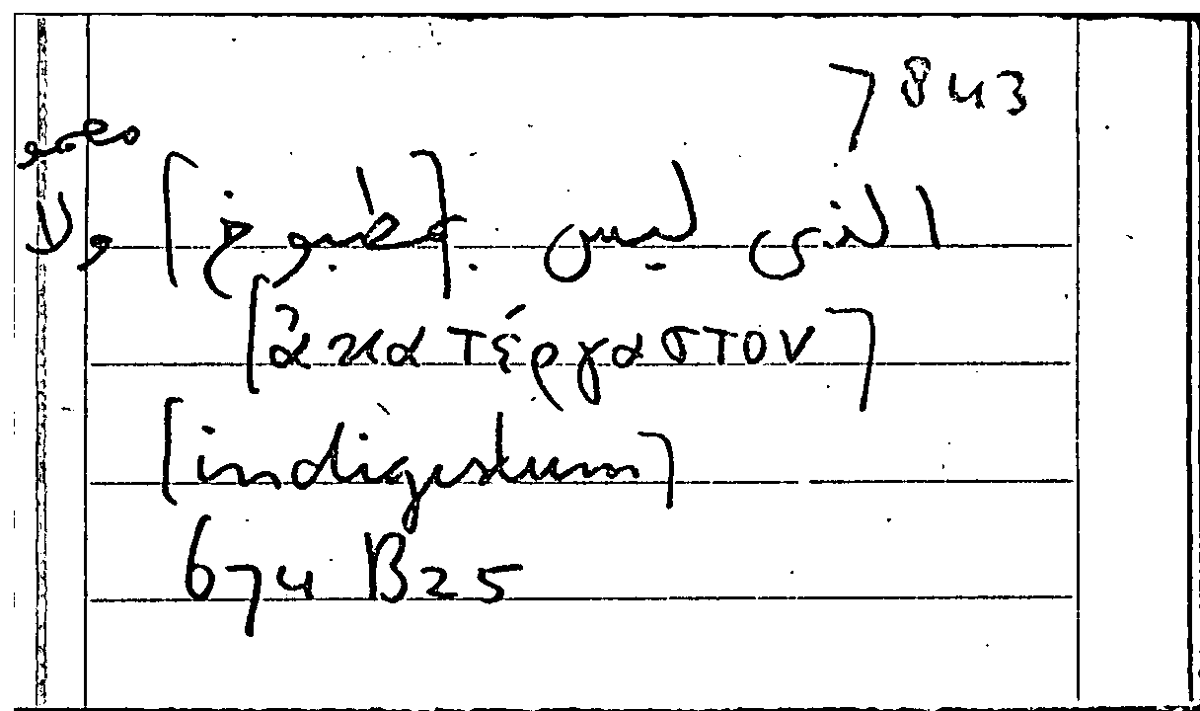 7 843
الذى ليس بمطبوخ] ولا]
[ἀκατέργαστον]
[indigestum]
674 B25